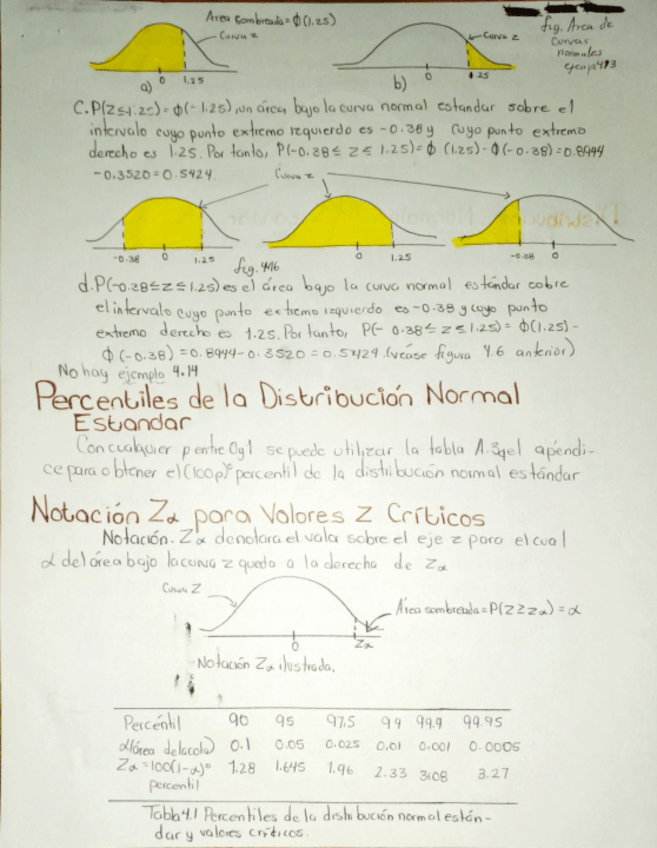 Area sombreada = Φ(1.25)
Curva z
0 1.25
a)
Curva z
0 1.25
b)
fig. Area de
curvas
normales
ejemp 4.13
C. P(Z ≤ 1.25) = Φ(-1.25), un área, bajo la curva normal estandar sobre el
intervalo cuyo punto extremo izquierdo es -0.38 y cuyo punto extremo
derecho es 1.25. Por tanto, P(-0.38 ≤ z ≤ 1.25) = Φ (1.25) - Φ(-0.38) = 0.8944
-0.3520 = 0.5424
Curva z
-0.38 0 1.25
0 1.25
-0.38 0
fig. 4.6
d. P(-0.38 ≤ z ≤ 1.25) es el área bajo la curva normal estándar sobre
el intervalo cuyo punto extremo izquierdo es -0.38 y cuyo punto
extremo derecho es 1.25. Por tanto, P(-0.38 ≤ z ≤ 1.25) = Φ(1.25) -
Φ(-0.38) = 0.8944 - 0.3520 = 0.5424 (véase figura 4.6 anterior)
No hay ejemplo 4.14
Percentiles de la Distribución Normal
Estandar
Con cualquier p entre 0 y 1 se puede utilizar la tabla A.3 y el apéndi-
ce para obtener el (100p)° percentil de la distribución normal estándar
Notación Zα para Valores Z Críticos
Notación. Zα denotara el valor sobre el eje z para el cual
α del área bajo la curva z queda a la derecha de Zα
Curva Z
Área sombreada = P(Z ≥ Zα) = α
0 Zα
Notación Zα ilustrada.
Percéntil 90 95 97.5 99 99.9 99.95
α(área de la cola) 0.1 0.05 0.025 0.01 0.001 0.0005
Zα = 100(1-α)° 1.28 1.645 1.96 2.33 3.08 3.27
percentil
Tabla 4.1 Percentiles de la distribución normal están-
dar y valores críticos.